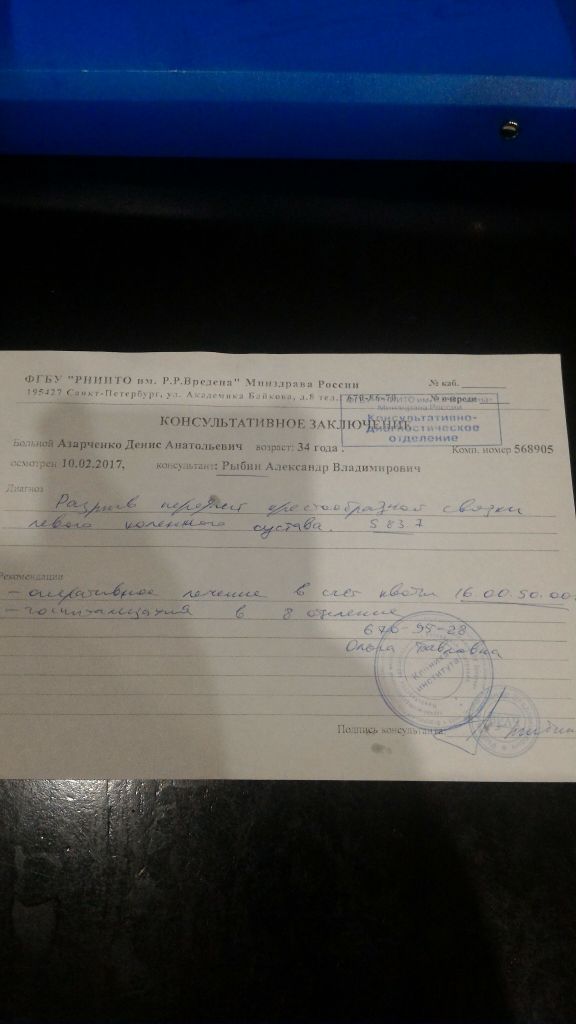 ФГБУ "РНИИТО им. Р.Р.Вредена" Минздрава России № каб.
195427 Санкт-Петербург, ул. Академика Байкова, д.8 тел. 670-86-70 № очереди
ФГБУ "РНИИТО им. Р.Р.Вредена"
Минздрава России
Консультативно-
диагностическое
отделение
КОНСУЛЬТАТИВНОЕ ЗАКЛЮЧЕНИЕ
Больной Азарченко Денис Анатольевич возраст: 34 года . Комп. номер 568905
осмотрен 10.02.2017, консультант: Рыбин Александр Владимирович
Диагноз
Разрыв передней крестообразной связки
левого коленного сустава. S 83.7
Рекомендации
- оперативное лечение в счёт квоты 16.00.50.00
- госпитализация в 8 отделение
670-95-28
Ольга Павловна
Клиника
института
Подпись консультанта: